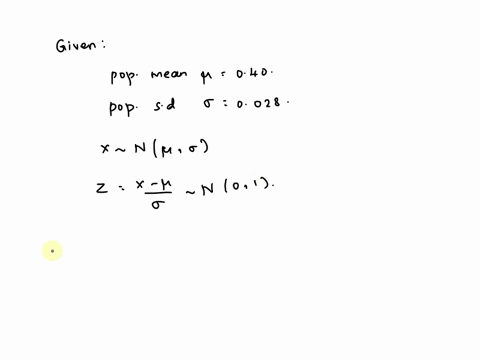 Given:
pop. mean μ = 0.40.
pop. s.d σ = 0.028.
x ~ N(μ, σ)
z = (x - μ)/σ ~ N(0, 1).